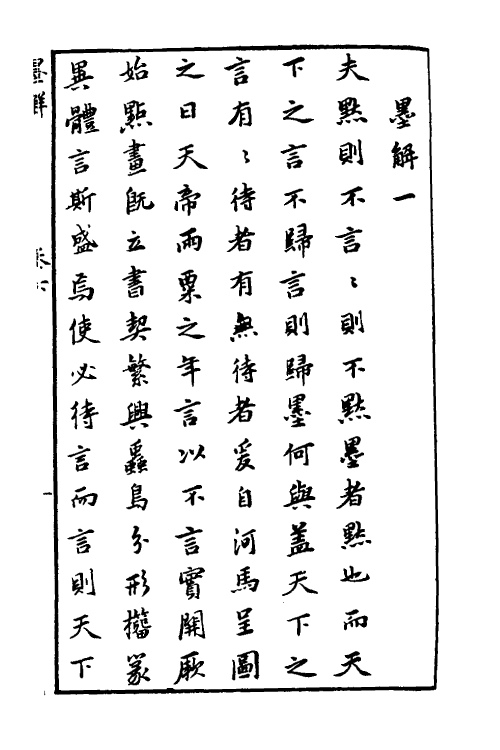 墨解一
夫默則不言〻則不默墨者默也而天
下之言不歸言則歸墨何與蓋天下之
言有〻待者有無待者爰自河馬呈圖
之日天帝雨粟之年言以不言實開厥
始點畫既立書契繁興蟲鳥分形籒篆
異體言斯盛焉使必待言而言則天下
墨解
卷六
一